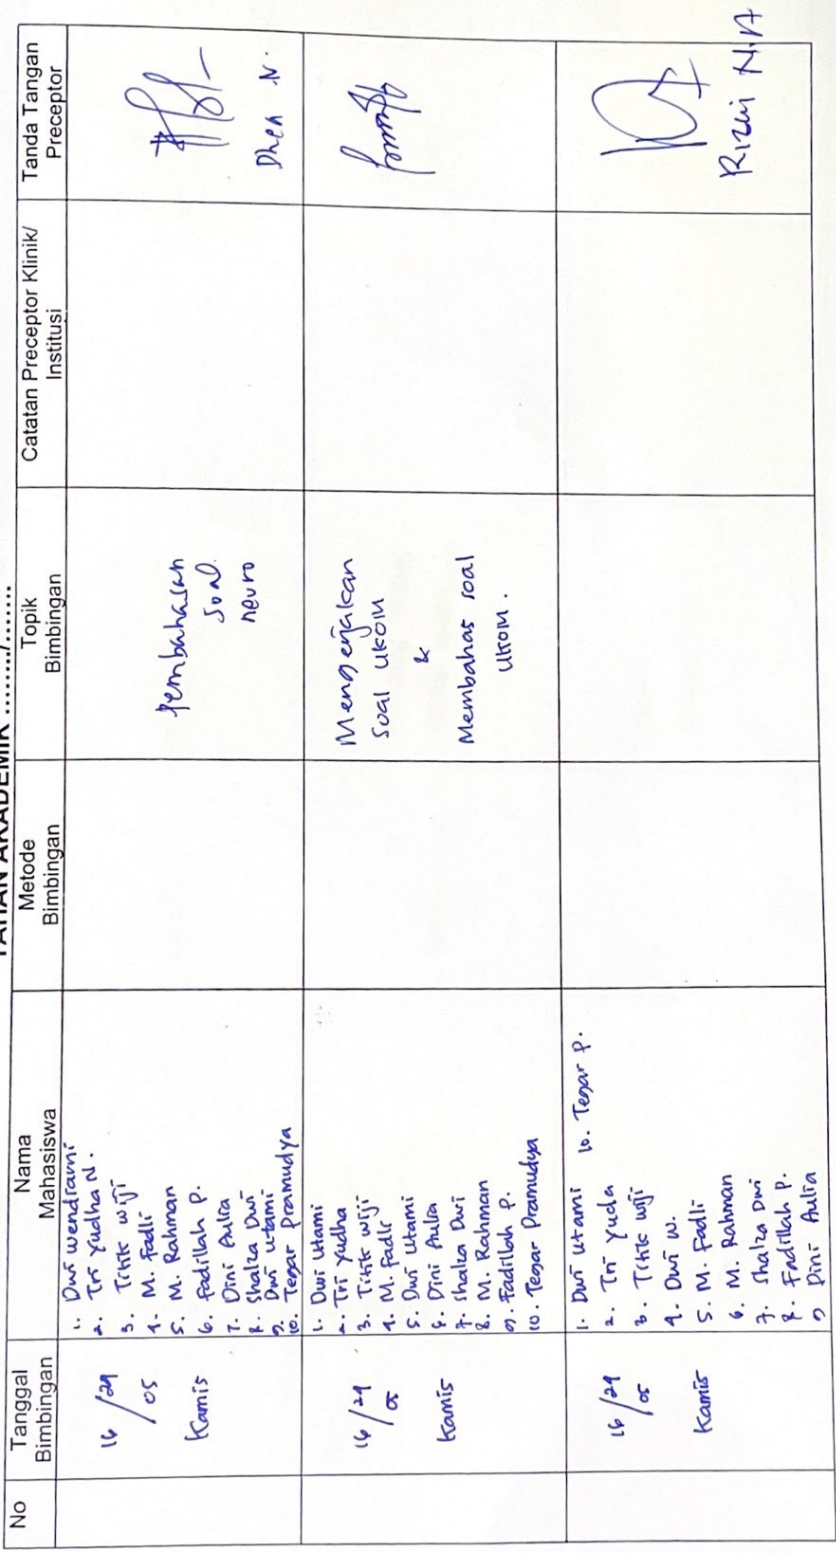 TAHUN AKADEMIK ......../........
No
Tanggal
Bimbingan
Nama
Mahasiswa
Metode
Bimbingan
Topik
Bimbingan
Catatan Preceptor Klinik/
Institusi
Tanda Tangan
Preceptor
16/24
05
Kamis
1. Dwi wendrami
2. Tri Yudha N.
3. Titik wiji
4. M. Fadli
5. M. Rahman
6. Fadillah P.
7. Dini Aulia
8. Shalza Dwi
9. Dwi utami
10. Tegar Pramudya
Pembahasan
soal
neuro
Dhea N.
16/24
05
Kamis
1. Dwi Utami
2. Tri Yudha
3. Titik wiji
4. M. Fadli
5. Dwi Utami
6. Dini Aulia
7. Shalza Dwi
8. M. Rahman
9. Fadillah P.
10. Tegar Pramudya
Mengerjakan
soal UKOM
&
Membahas soal
UKOM.
16/24
05
Kamis
1. Dwi Utami 10. Tegar P.
2. Tri Yuda
3. Titik wiji
4. Dwi W.
5. M. Fadli
6. M. Rahman
7. Shalza Dwi
8. Fadillah P.
9. Dini Aulia
Rizki N.A